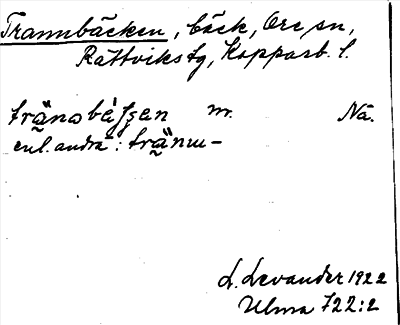 Trannbäcken, bäck, Ore sn,
Rättviks tg, Kopparb. l.
m. Nä.
enl. andra: tränm-
L. Levander 1922
Ulma 722:2